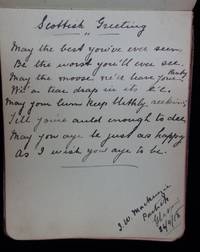 Scottish Greeting
May the best you've ever seen
Be the worst you'll ever see.
May the moose ne'er leave your
Wi' a tear drap in its e'e.
May your lum keep blithly reeking
Till you're auld enough to dee.
May you aye be just as happy
As I wish you aye to be.
J. W. Mackenzie
Partick